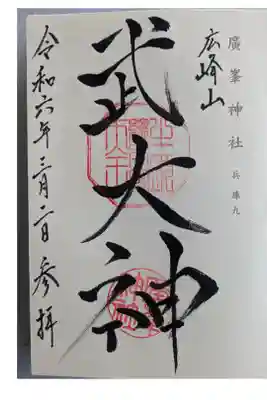 廣峯神社
兵庫九
広峰山
武大神
令和六年三月二日参拝